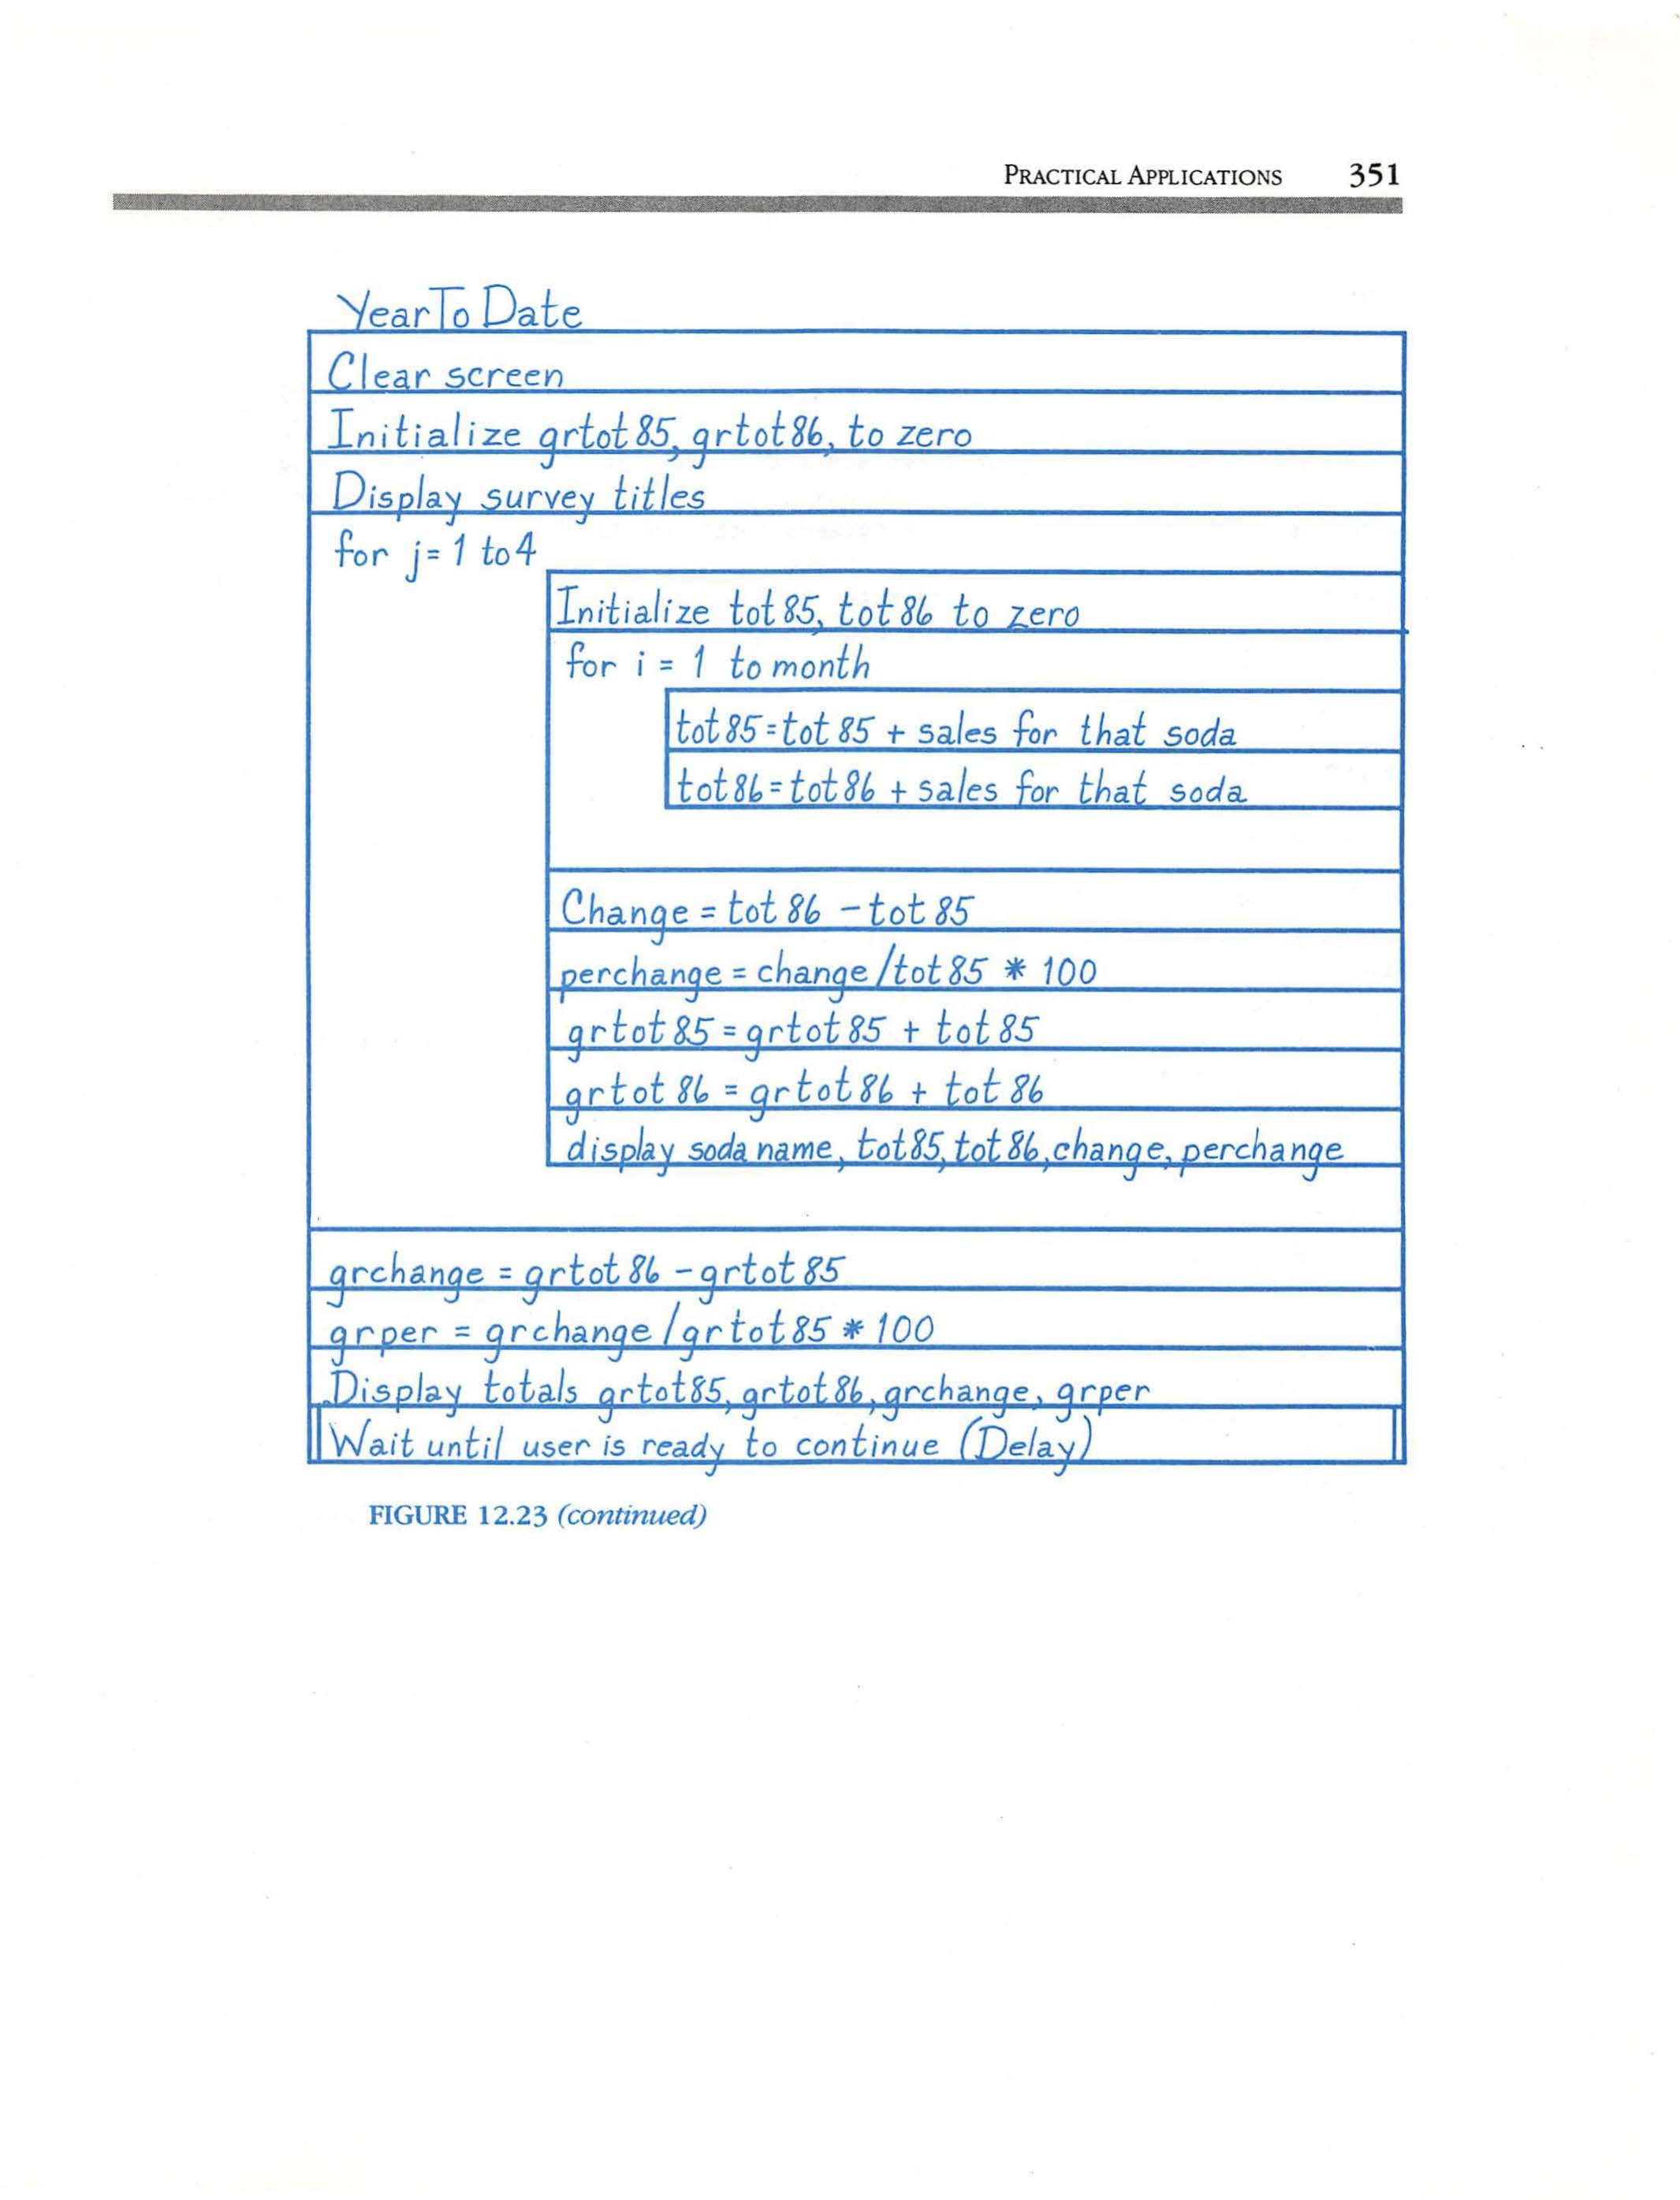 PRACTICAL APPLICATIONS 351
YearTo Date
Clear screen
Initialize grtot85, grtot86, to zero
Display survey titles
for j= 1 to 4
Initialize tot85, tot86 to zero
for i = 1 to month
tot85=tot85 + sales for that soda
tot86=tot86 + sales for that soda
Change = tot86 - tot85
perchange = change/tot85 * 100
grtot85 = grtot85 + tot85
grtot86 = grtot86 + tot86
display soda name, tot85, tot86, change, perchange
grchange = grtot86 - grtot85
grper = grchange/grtot85 * 100
Display totals grtot85, grtot86, grchange, grper
Wait until user is ready to continue (Delay)
FIGURE 12.23 (continued)